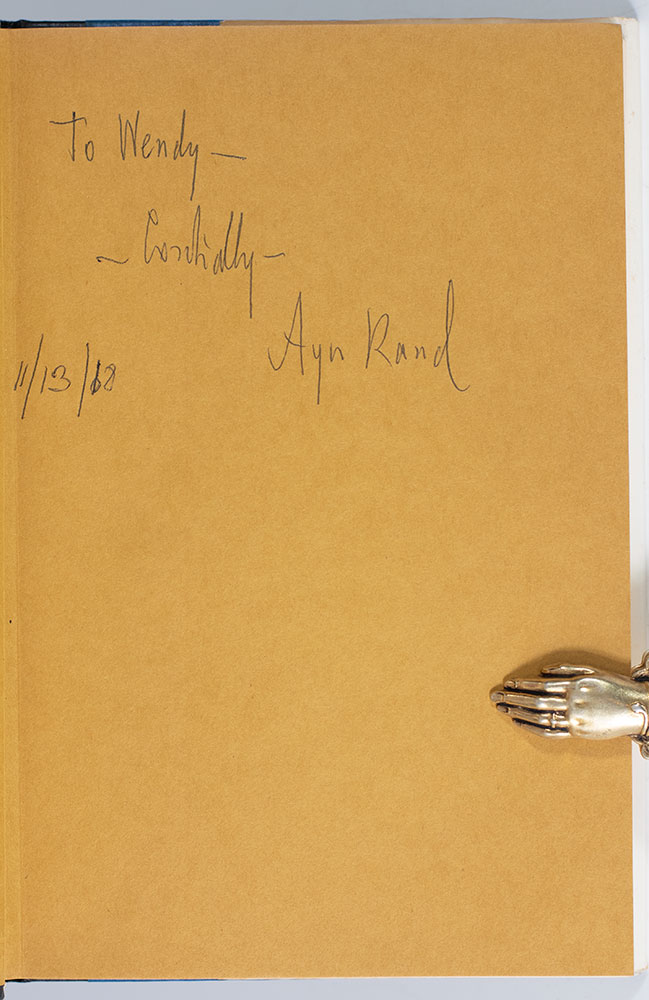 To Wendy —
~ Cordially —
Ayn Rand
11/13/68